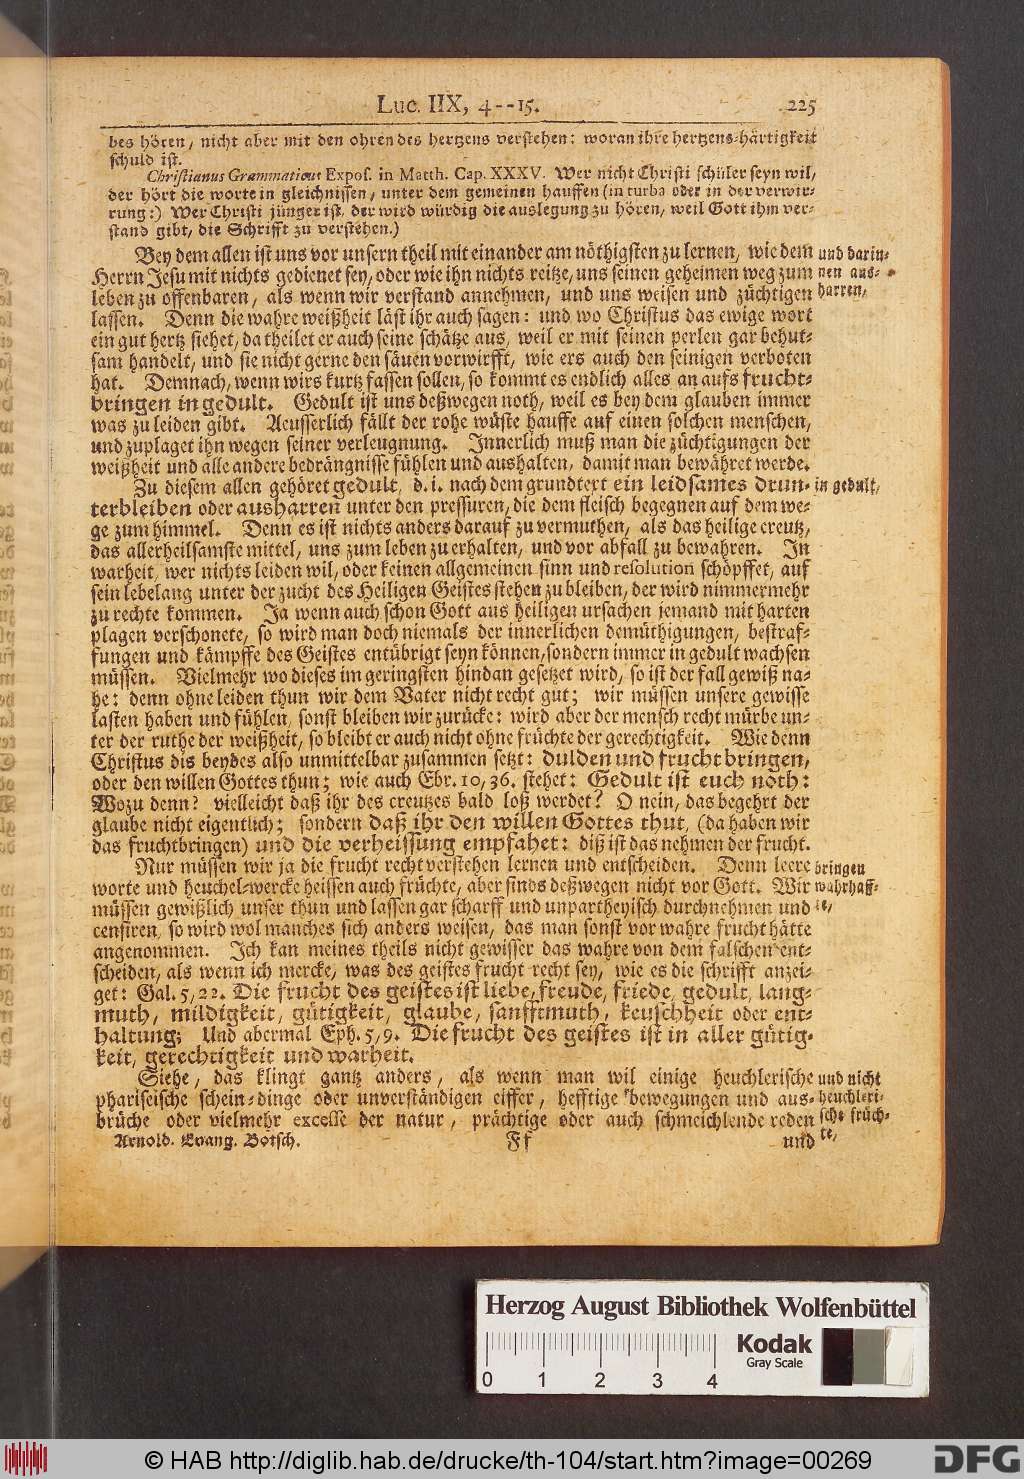 Luc. IIX, 4--15. 225
bes hören, nicht aber mit den ohren des hertzens verstehen: woran ihre hertzens-härtigkeit
schuld ist.
Christianus Grammaticus Expos. in Matth. Cap. XXXV. Wer nicht Christi schüler seyn wil,
der hört die worte in gleichnissen, unter dem gemeinen hauffen (in turba oder in der verwir-
rung:) Wer Christi jünger ist, der wird würdig die auslegung zu hören, weil Gott ihm ver-
stand gibt, die Schrifft zu verstehen.)
Bey dem allen ist uns vor unsern theil mit einander am nöthigsten zu lernen, wie dem und darin-
Herrn Jesu mit nichts gedienet sey, oder wie ihn nichts reitze, uns seinen geheimen weg zum nen aus-
leben zu offenbaren, als wenn wir verstand annehmen, und uns weisen und züchtigen harren,
lassen. Denn die wahre weißheit läst ihr auch sagen: und wo Christus das ewige wort
ein gut hertz siehet, da theilet er auch seine schätze aus, weil er mit seinen perlen gar behut-
sam handelt, und sie nicht gerne den säuen vorwirfft, wie ers auch den seinigen verboten
hat. Demnach, wenn wirs kurtz fassen sollen, so kommt es endlich alles an aufs frucht-
bringen in gedult. Gedult ist uns deßwegen noth, weil es bey dem glauben immer
was zu leiden gibt. Aeusserlich fällt der rohe wüste hauffe auf einen solchen menschen,
und zuplaget ihn wegen seiner verleugnung. Innerlich muß man die züchtigungen der
weißheit und alle andere bedrängnisse fühlen und aushalten, damit man bewähret werde.
Zu diesem allen gehöret gedult, d. i. nach dem grundtext ein leidsames drun- in gedult,
terbleiben oder ausharren unter den pressuren, die dem fleisch begegnen auf dem we-
ge zum himmel. Denn es ist nichts anders darauf zu vermuthen, als das heilige creutz,
das allerheilsamste mittel, uns zum leben zu erhalten, und vor abfall zu bewahren. In
warheit, wer nichts leiden wil, oder keinen allgemeinen sinn und resolution schöpffet, auf
sein lebelang unter der zucht des Heiligen Geistes stehen zu bleiben, der wird nimmermehr
zu rechte kommen. Ja wenn auch schon Gott aus heiligen ursachen jemand mit harten
plagen verschonete, so wird man doch niemals der innerlichen demüthigungen, bestraf-
fungen und kämpffe des Geistes entübrigt seyn können, sondern immer in gedult wachsen
müssen. Vielmehr wo dieses im geringsten hindan gesetzet wird, so ist der fall gewiß na-
he: denn ohne leiden thun wir dem Vater nicht recht gut; wir müssen unsere gewisse
lasten haben und fühlen, sonst bleiben wir zurücke: wird aber der mensch recht mürbe un-
ter der ruthe der weißheit, so bleibt er auch nicht ohne früchte der gerechtigkeit. Wie denn
Christus dis beydes also unmittelbar zusammen setzt: dulden und frucht bringen,
oder den willen Gottes thun; wie auch Ebr. 10, 36. stehet: Gedult ist euch noth:
Wozu denn? vielleicht daß ihr des creutzes bald loß werdet? O nein, das begehrt der
glaube nicht eigentlich; sondern daß ihr den willen Gottes thut, (da haben wir
das fruchtbringen) und die verheissung empfahet: diß ist das nehmen der frucht.
Nur müssen wir ja die frucht recht verstehen lernen und entscheiden. Denn leere bringen
worte und heuchel-wercke heissen auch früchte, aber sinds deßwegen nicht vor Gott. Wir wahrhaff-
müssen gewißlich unser thun und lassen gar scharff und unpartheyisch durchnehmen und te,
censiren, so wird wol manches sich anders weisen, das man sonst vor wahre frucht hätte
angenommen. Ich kan meines theils nicht gewisser das wahre von dem falschen ent-
scheiden, als wenn ich mercke, was des geistes frucht recht sey, wie es die schrifft anzei-
get: Gal. 5, 22. Die frucht des geistes ist liebe, freude, friede, gedult, lang-
muth, mildigkeit, gütigkeit, glaube, sanfftmuth, keuschheit oder ent-
haltung; Und abermal Eph. 5, 9. Die frucht des geistes ist in aller gütig-
keit, gerechtigkeit und warheit.
Siehe, das klingt gantz anders, als wenn man wil einige heuchlerische und nicht
phariseische schein-dinge oder unverständigen eiffer, hefftige bewegungen und aus- heuchleri-
brüche oder vielmehr excesse der natur, prächtige oder auch schmeichlende reden sche früch-
Arnold. Evang. Botsch. Ff und te,
Herzog August Bibliothek Wolfenbüttel
Kodak
Gray Scale
0 1 2 3 4
© HAB http://diglib.hab.de/drucke/th-104/start.htm?image=00269
DFG